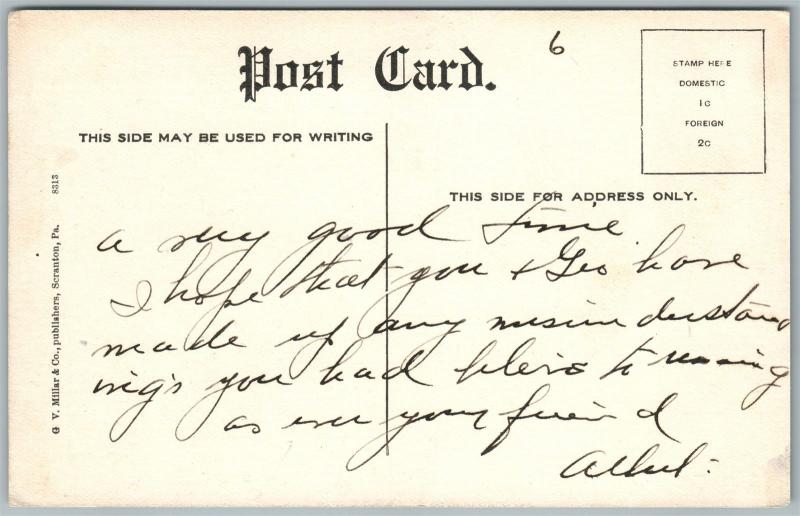 Post Card.
6
STAMP HERE
DOMESTIC
1C
FOREIGN
2C
THIS SIDE MAY BE USED FOR WRITING
THIS SIDE FOR ADDRESS ONLY.
G. V. Millar & Co., publishers, Scranton, Pa. 8313
a very good time
I hope that you & Geo have
made up any misunderstand
ings you had
as ever your friend